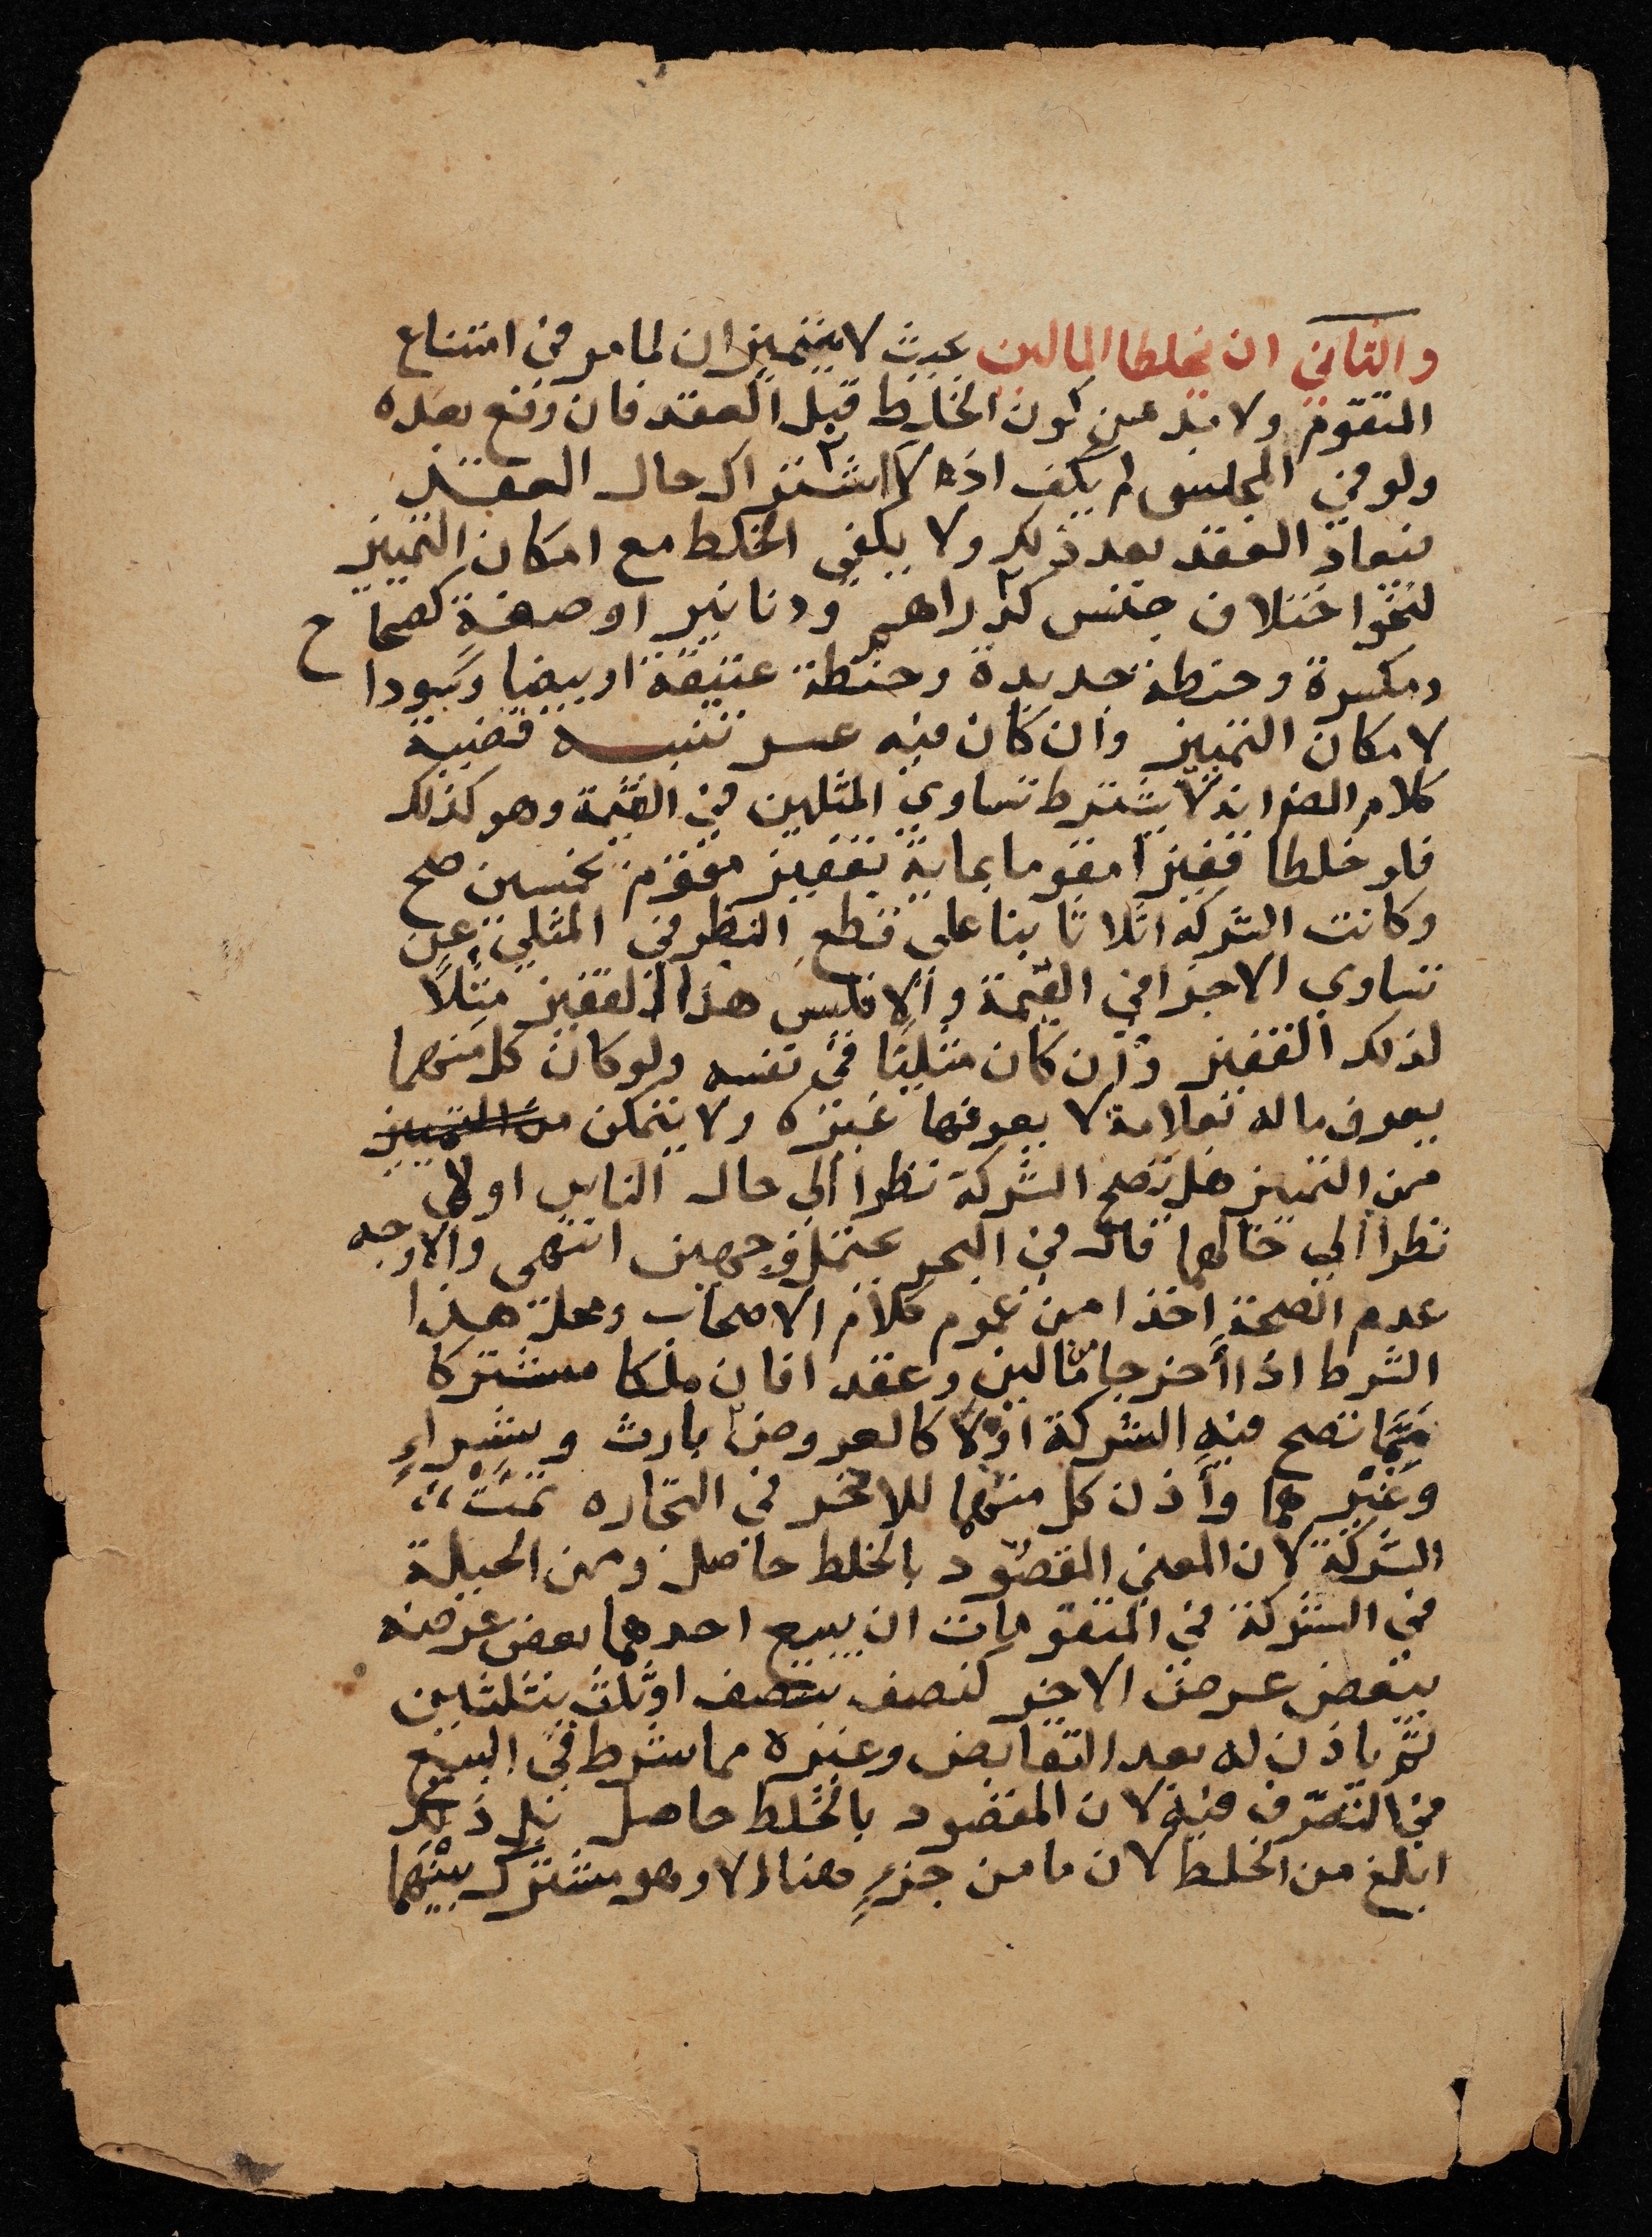 والثاني ان يخلطا المالين بحيث لا يتميزان لما مر في امتناع
المتقوم ولا بد من كون الخلط قبل العقد فان وقع بعده
ولو في المجلس لم يكف اذ لا اشتراك حال العقد
فيعاد العقد بعد ذلك ولا يكفي الخلط مع امكان التمييز
لنحو اختلاف جنس كدراهم ودنانير او صفة كصحاح
ومكسرة وحنطة جديدة وحنطة عتيقة او بيضا وسودا
لامكان التمييز وان كان فيه عسر تنبيه قضية
كلام المص انه لا يشترط تساوي المثلين في القيمة وهو كذلك
فلو خلطا قفيزا مقوما بماية بقفيز مقوم بخمسين صح
وكانت الشركة اثلاثا بنا على قطع النظر في المثلي عن
تساوي الاجزا في القيمة والا فليس هذا القفيز مثلا
لذلك القفيز وان كان مثليا في نفسه ولو كان كل منهما
يعرف ماله بعلامة لا يعرفها غيره ولا يتمكن من التمييز
من التمييز هل تصح الشركة نظرا الى حال الناس او لا
نظرا الى حالهما قال في البحر يحتمل وجهين انتهى والاوجه
عدم الصحة اخذا من عموم كلام الاصحاب ومحل هذا
الشرط اذا اخرجا مالين وعقد افان ملكا مشتركا
مما تصح فيه الشركة اولا كالعروض بارث وشراءٍ
وغيرهما واذن كل منهما للاخر في التجاره تمت
الشركة لان المعني المقصود بالخلط حاصل ومن الحيلة
في الشركة في المتقومات ان يبيع احدهما بعض عرضه
ببعض عرض الاخر كنصف بنصف او ثلث بثلثين
ثم ياذن له بعد التقابض وغيره مما شرط في البيع
في التصرف فيه لان المقصود بالخلط حاصل بل ذلك
ابلغ من الخلط لان ما من جزءٍ هنا الا وهو مشترك بينهما